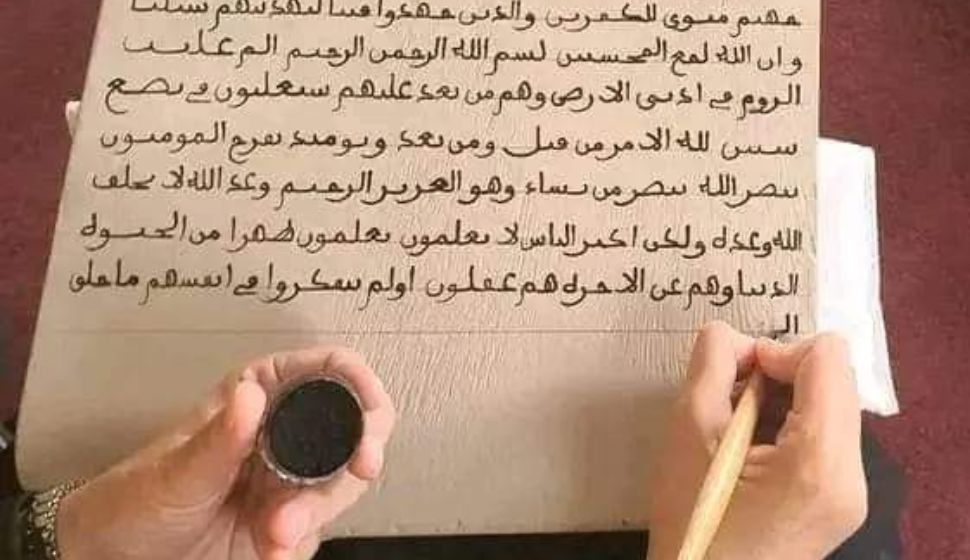 جهنم مثوى للكفرين والذين جهدوا فينا لنهدينهم سبلنا
وان الله لمع المحسنين بسم الله الرحمن الرحيم الم غلبت
الروم في ادنى الارض وهم من بعد غلبهم سيغلبون في بضع
سنين لله الامر من قبل ومن بعد ويومئذ يفرح المومنون
بنصر الله ينصر من يشاء وهو العزيز الرحيم وعد الله لا يخلف
الله وعده ولكن اكثر الناس لا يعلمون يعلمون ظهرا من الحيوة
الدنيا وهم عن الاخرة هم غفلون اولم يتفكروا في انفسهم ما خلق